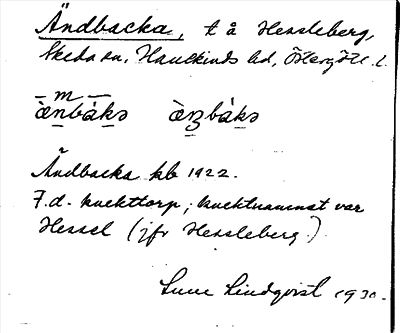 Ändbacka, t å Hessleberg,
Skeda sn, Hanekinds hd, Östergötl. l.
m
æ̀nbákə æ̀nbákə
Ändbacka kb 1922.
F.d. knekttorp; knektnamnet var
Hessel (jfr Hessleberg.)
Sune Lindqvist 1930.